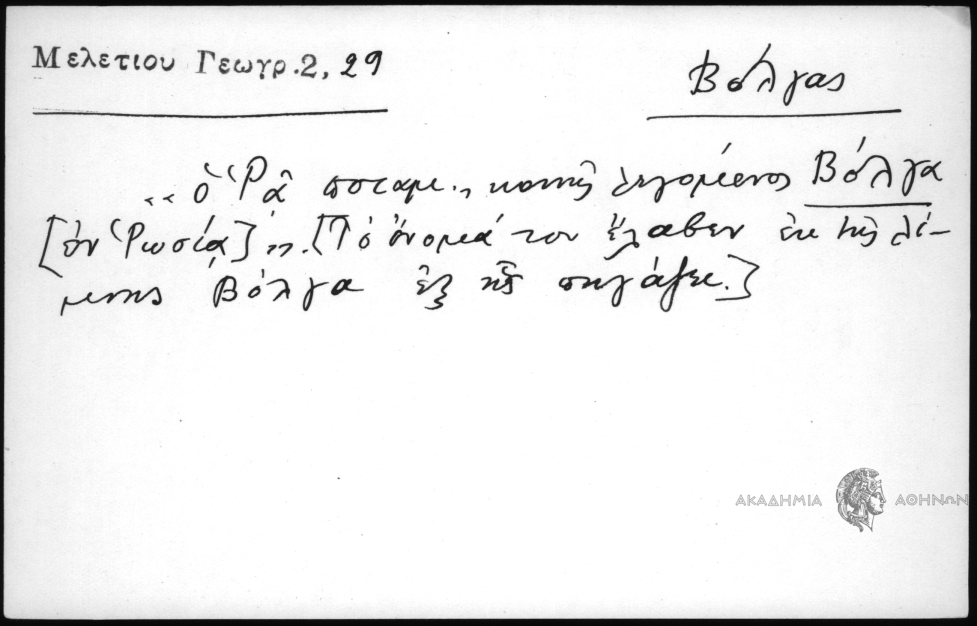 Μελετιου Γεωγρ. 2, 29
Βόλγας
«ὁ Ῥᾶ ποταμ., κοινῶς λεγόμενος Βόλγα
[ἐν Ῥωσίᾳ]». [Τὸ ὄνομά του ἔλαβεν ἐκ τῆς λί-
μνης Βόλγα ἐξ ἧς πηγάζει.]
ΑΚΑΔΗΜΙΑ ΑΘΗΝΩΝ